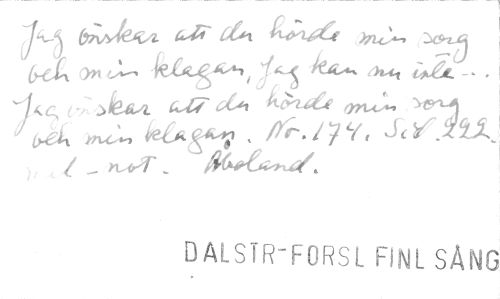 Jag önskar att du hörde min sorg
och min klagan, Jag kan nu inte...
Jag önskar att du hörde min sorg
och min klagan. No. 174. Sid. 222.
mel-not. Åboland.
DALSTR-FORSL FINL SÅNG